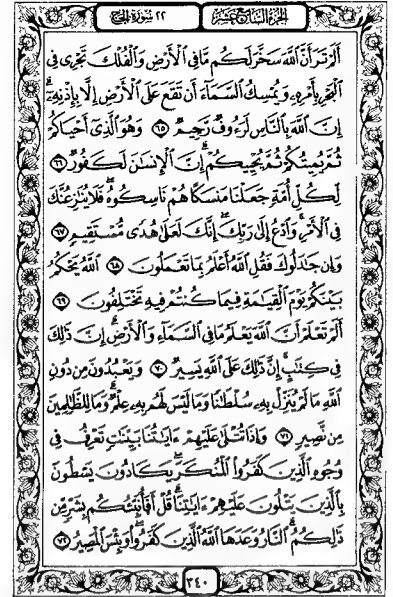 الجزء السابع عشر
٢٢ سورة الحج
أَلَمْ تَرَ أَنَّ ٱللَّهَ سَخَّرَ لَكُم مَّا فِى ٱلْأَرْضِ وَٱلْفُلْكَ تَجْرِى فِى
ٱلْبَحْرِ بِأَمْرِهِۦ وَيُمْسِكُ ٱلسَّمَآءَ أَن تَقَعَ عَلَى ٱلْأَرْضِ إِلَّا بِإِذْنِهِۦٓ
إِنَّ ٱللَّهَ بِٱلنَّاسِ لَرَءُوفٌ رَّحِيمٌ ٦٥ وَهُوَ ٱلَّذِىٓ أَحْيَاكُمْ
ثُمَّ يُمِيتُكُمْ ثُمَّ يُحْيِيكُمْ ۗ إِنَّ ٱلْإِنسَٰنَ لَكَفُورٌ ٦٦
لِّكُلِّ أُمَّةٍ جَعَلْنَا مَنسَكًا هُمْ نَاسِكُوهُ ۖ فَلَا يُنَٰزِعُنَّكَ
فِى ٱلْأَمْرِ ۚ وَٱدْعُ إِلَىٰ رَبِّكَ ۖ إِنَّكَ لَعَلَىٰ هُدًى مُّسْتَقِيمٍ ٦٧
وَإِن جَٰدَلُوكَ فَقُلِ ٱللَّهُ أَعْلَمُ بِمَا تَعْمَلُونَ ٦٨ ٱللَّهُ يَحْكُمُ
بَيْنَكُمْ يَوْمَ ٱلْقِيَٰمَةِ فِيمَا كُنتُمْ فِيهِ تَخْتَلِفُونَ ٦٩
أَلَمْ تَعْلَمْ أَنَّ ٱللَّهَ يَعْلَمُ مَا فِى ٱلسَّمَآءِ وَٱلْأَرْضِ ۗ إِنَّ ذَٰلِكَ
فِى كِتَٰبٍ ۚ إِنَّ ذَٰلِكَ عَلَى ٱللَّهِ يَسِيرٌ ٧٠ وَيَعْبُدُونَ مِن دُونِ
ٱللَّهِ مَا لَمْ يُنَزِّلْ بِهِۦ سُلْطَٰنًا وَمَا لَيْسَ لَهُم بِهِۦ عِلْمٌ ۗ وَمَا لِلظَّٰلِمِينَ
مِن نَّصِيرٍ ٧١ وَإِذَا تُتْلَىٰ عَلَيْهِمْ ءَايَٰتُنَا بَيِّنَٰتٍ تَعْرِفُ فِى
وُجُوهِ ٱلَّذِينَ كَفَرُوا۟ ٱلْمُنكَرَ ۖ يَكَادُونَ يَسْطُونَ
بِٱلَّذِينَ يَتْلُونَ عَلَيْهِمْ ءَايَٰتِنَا ۗ قُلْ أَفَأُنَبِّئُكُم بِشَرٍّ مِّن
ذَٰلِكُمُ ۗ ٱلنَّارُ وَعَدَهَا ٱللَّهُ ٱلَّذِينَ كَفَرُوا۟ ۖ وَبِئْسَ ٱلْمَصِيرُ ٧٢
٣٤٠